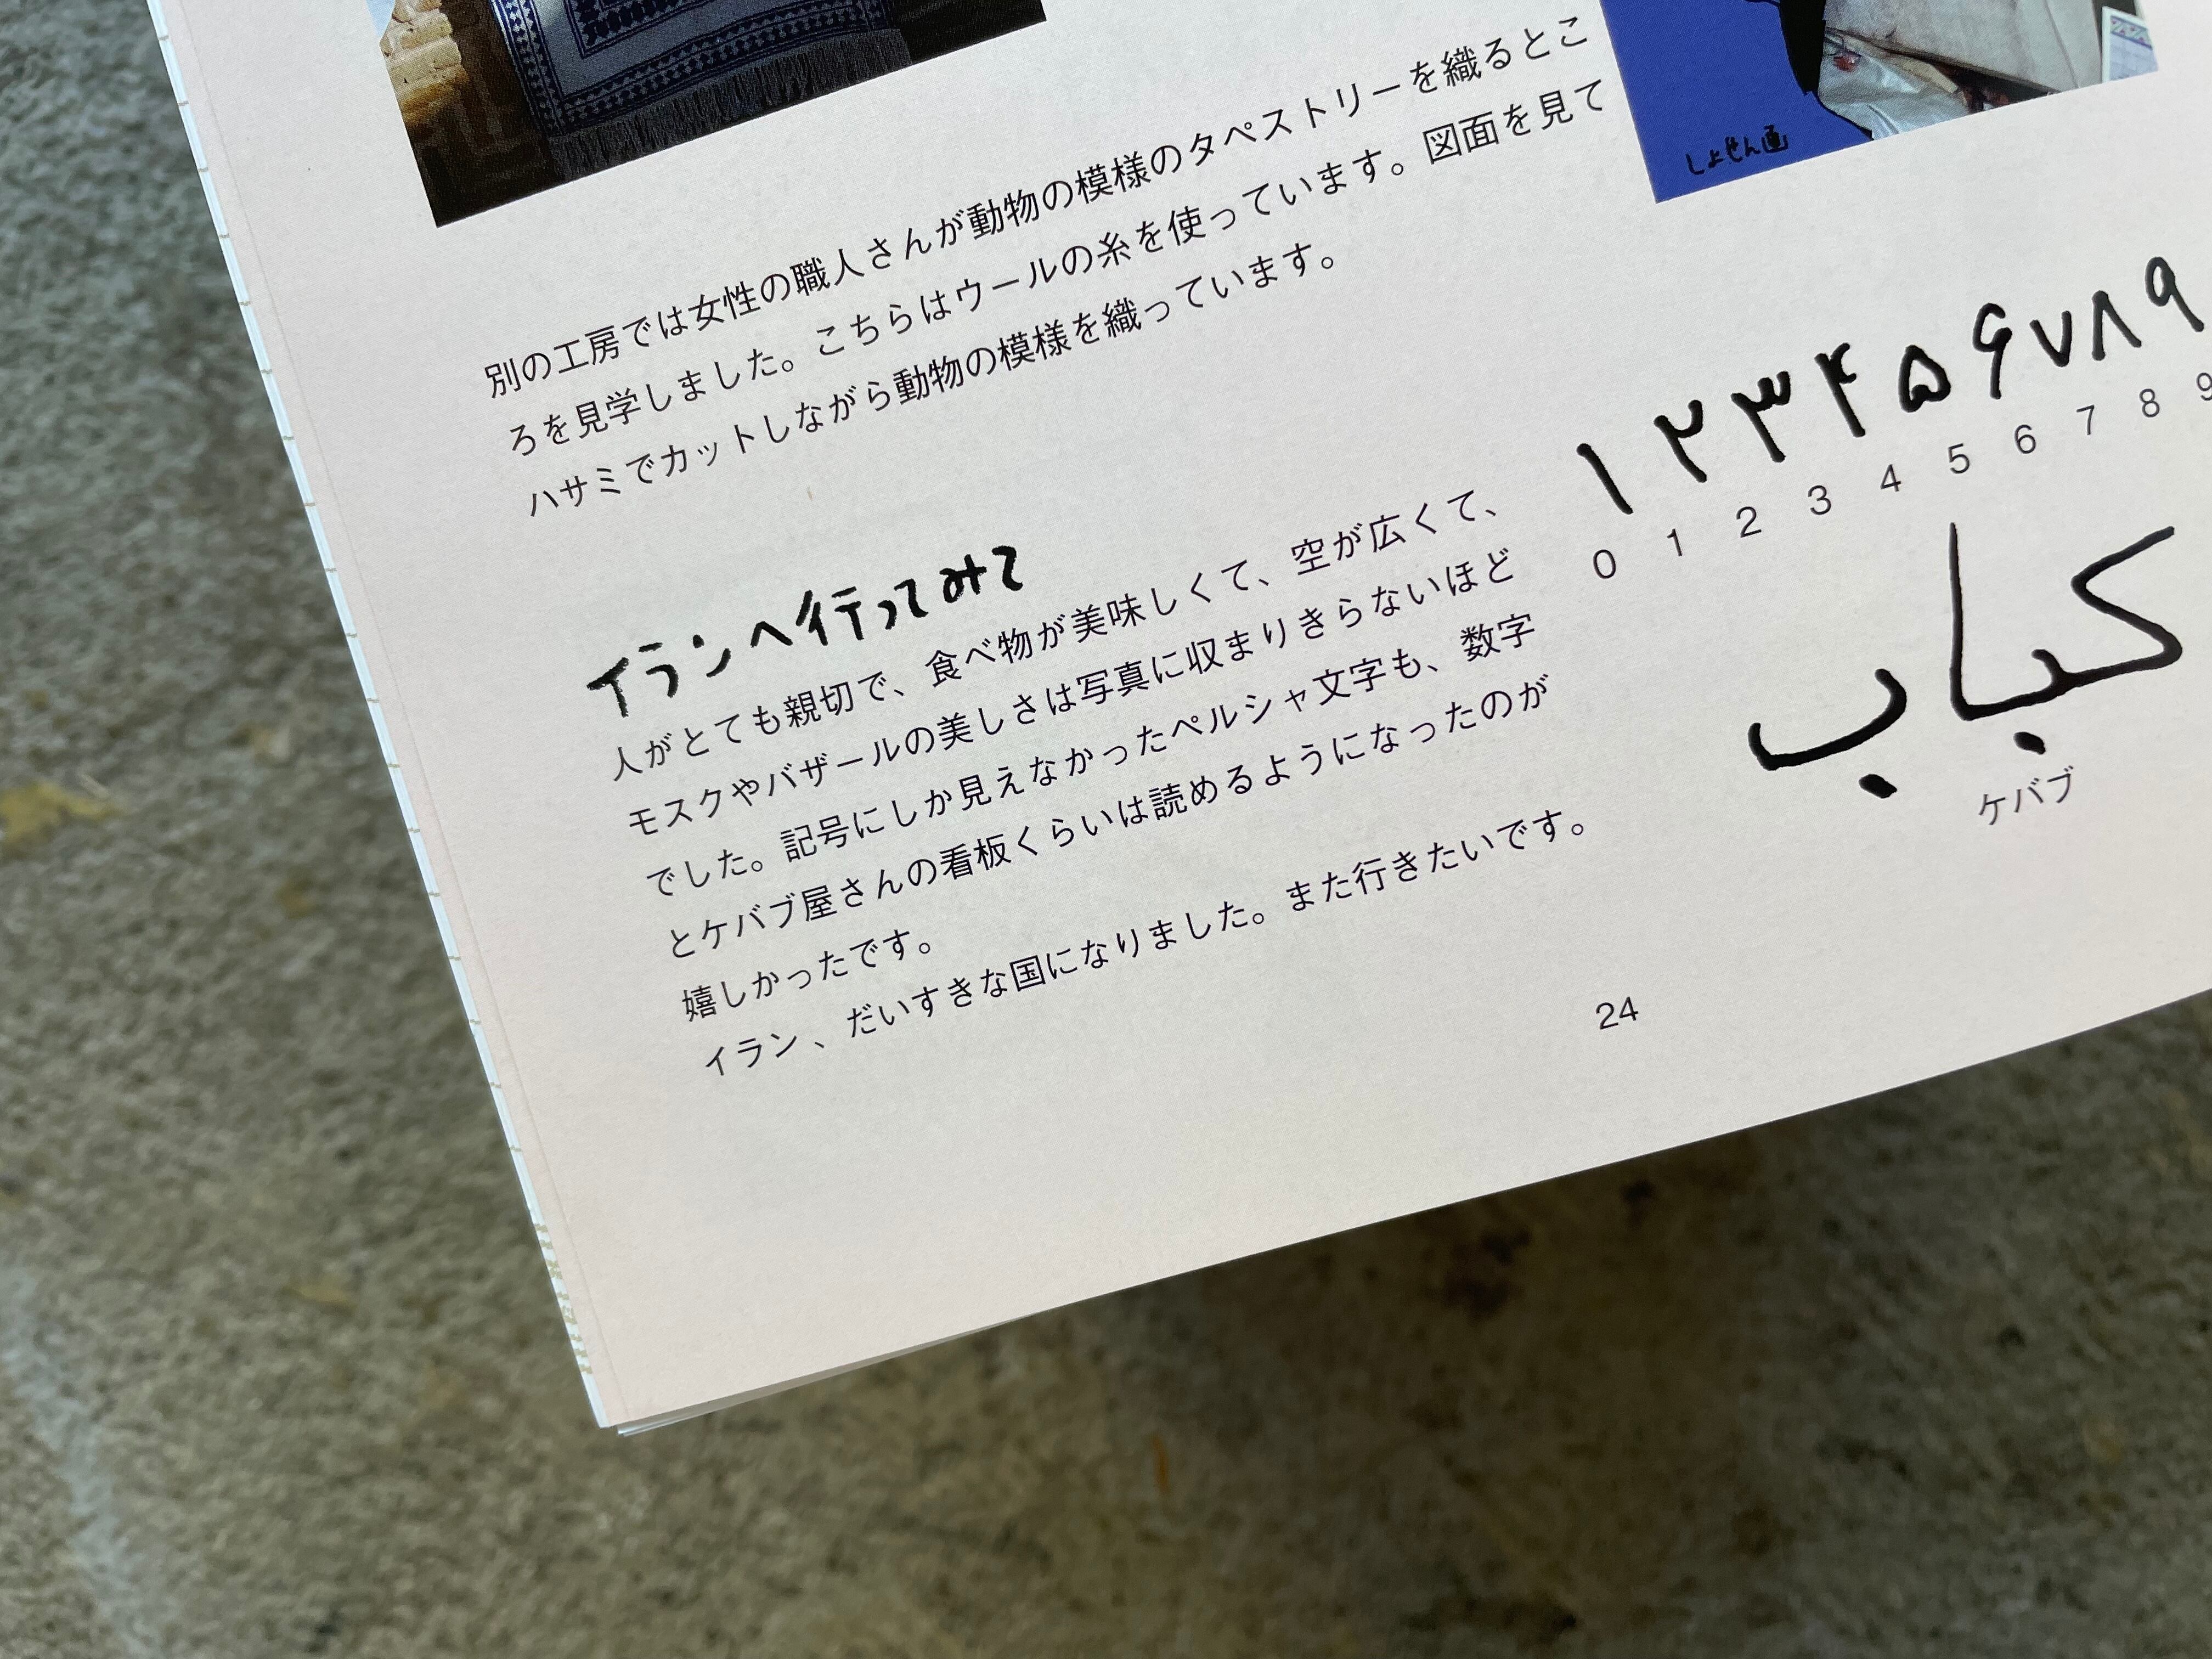 しょせん画
別の工房では女性の職人さんが動物の模様のタペストリーを織るとこ
ろを見学しました。こちらはウールの糸を使っています。図面を見て
ハサミでカットしながら動物の模様を織っています。
イランへ行ってみて
人がとても親切で、食べ物が美味しくて、空が広くて、
モスクやバザールの美しさは写真に収まりきらないほど
でした。記号にしか見えなかったペルシャ文字も、数字
とケバブ屋さんの看板くらいは読めるようになったのが
嬉しかったです。
イラン、だいすきな国になりました。また行きたいです。
۱ ۲ ۳ ۴ ۵ ۶ ۷ ۸ ۹
0 1 2 3 4 5 6 7 8 9
کباب
ケバブ
24